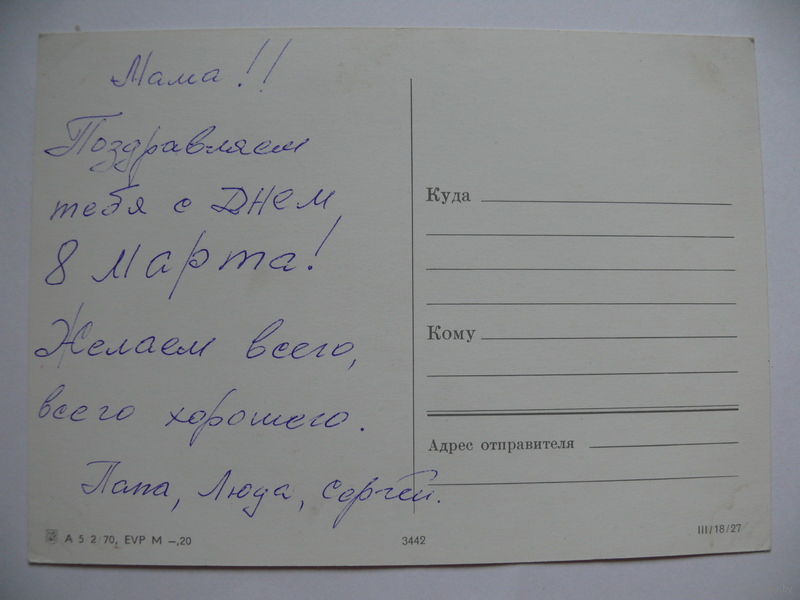 Мама!!
Поздравляем
тебя с Днем
8 Марта!
Желаем всего,
всего хорошего.
Папа, Люда, Сергей.
Куда
Кому
Адрес отправителя
A 5 2/70, EVP M –,20
3442
III/18/27